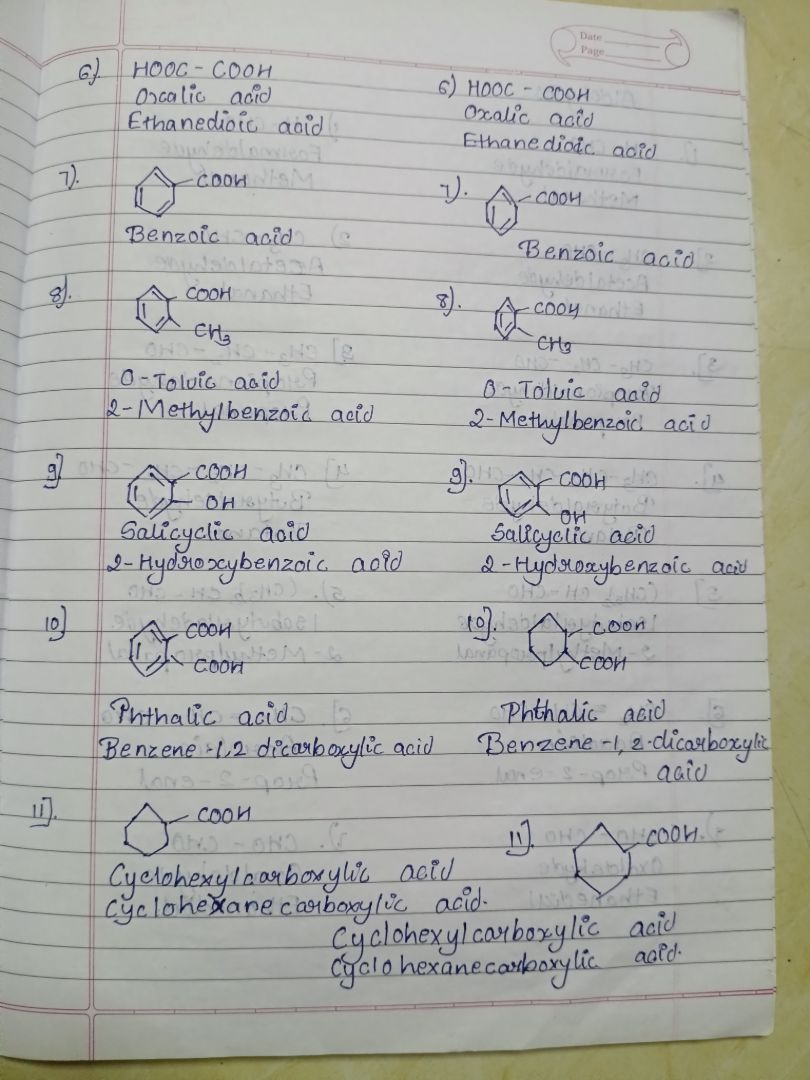 Date
Page
6) HOOC - COOH
Oxcalic acid
Ethanedioic acid
7). COOH
Benzoic acid
8). COOH
CH3
O-Toluic acid
2-Methylbenzoic acid
9] COOH
OH
Salicyclic acid
2-Hydroxybenzoic acid
10] COOH
COOH
Phthalic acid
Benzene -1,2 dicarboxylic acid
11]. COOH
Cyclohexylcarboxylic acid
Cyclohexanecarboxylic acid.
6) HOOC - COOH
Oxalic acid
Ethanedioic acid
7). COOH
Benzoic acid
8). COOH
CH3
O-Toluic acid
2-Methylbenzoic acid
9]. COOH
OH
Salicyclic acid
2-Hydroxybenzoic acid
10]. COOH
COOH
Phthalic acid
Benzene -1,2-dicarboxylic
acid
11]. COOH.
Cyclohexylcarboxylic acid
Cyclohexanecarboxylic acid.